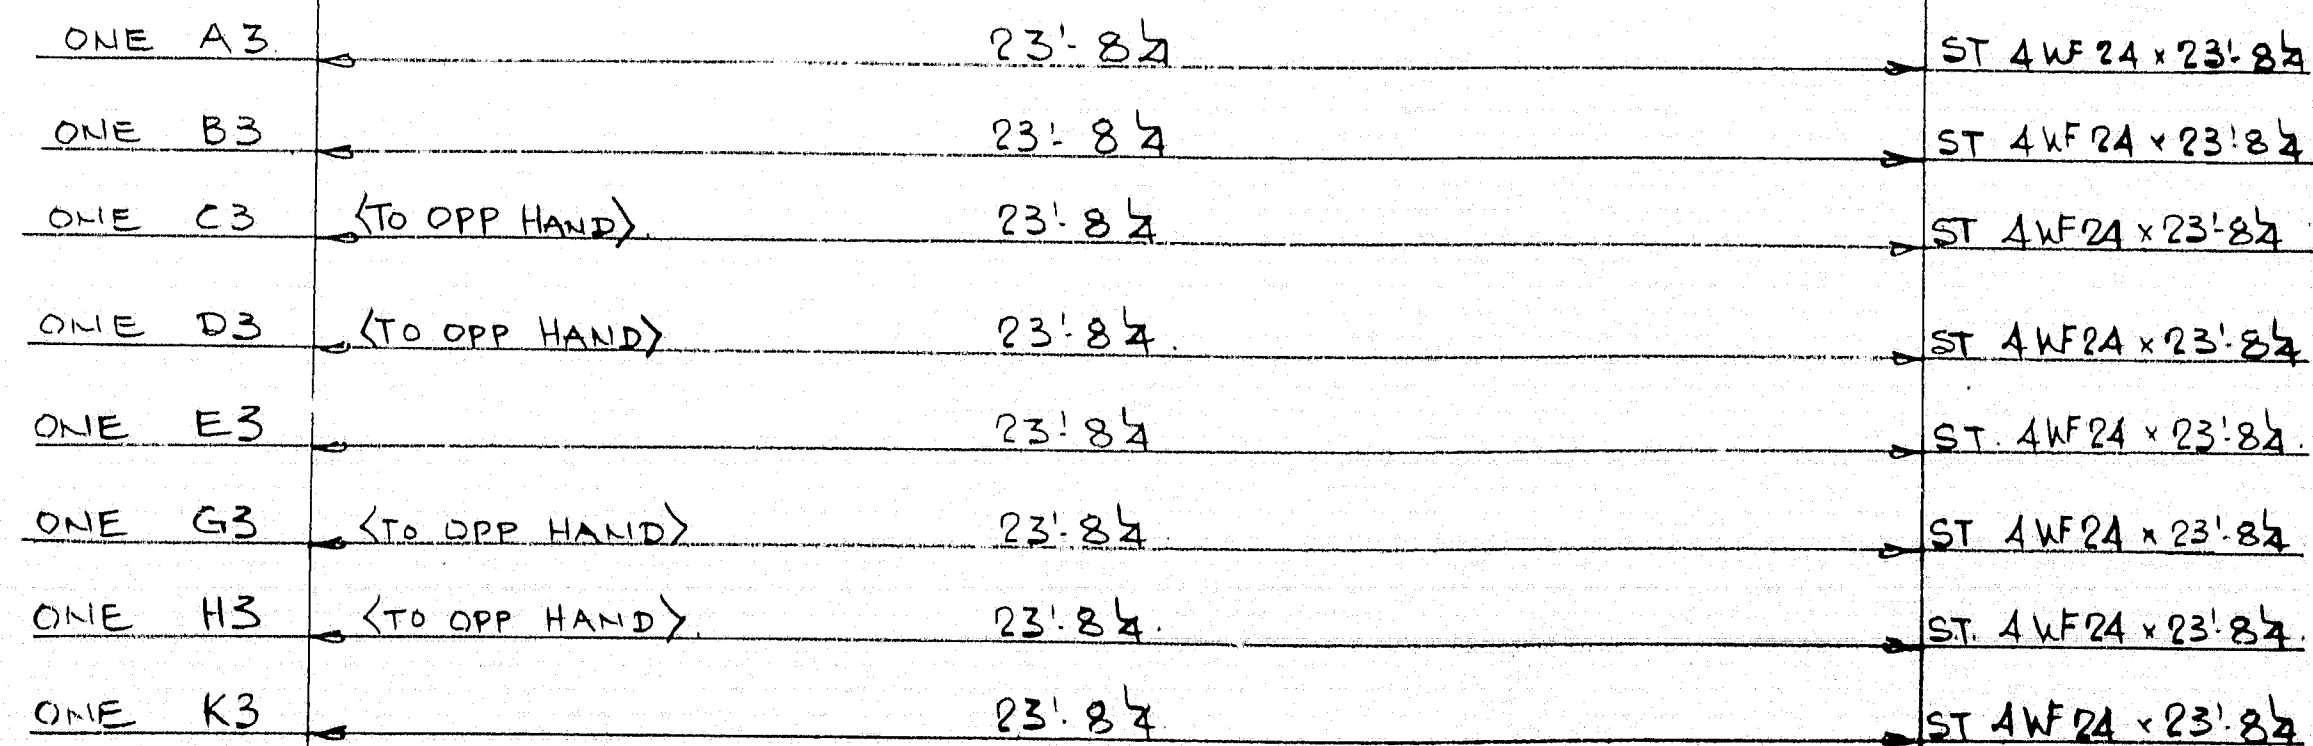 ONE A3. 23'-8¼ ST 4WF24 × 23'-8¼
ONE B3 23'-8¼ ST 4WF24 × 23'-8¼
ONE C3 <TO OPP HAND>. 23'-8¼ ST 4WF24 × 23'-8¼
ONE D3 <TO OPP HAND> 23'-8¼. ST 4WF24 × 23'-8¼
ONE E3 23'-8¼ ST. 4WF24 × 23'-8¼.
ONE G3 <TO OPP HAND> 23'-8¼ ST 4WF24 × 23'-8¼
ONE H3 <TO OPP HAND>. 23'-8¼. ST. 4WF24 × 23'-8¼.
ONE K3 23'-8¼ ST 4WF24 × 23'-8¼